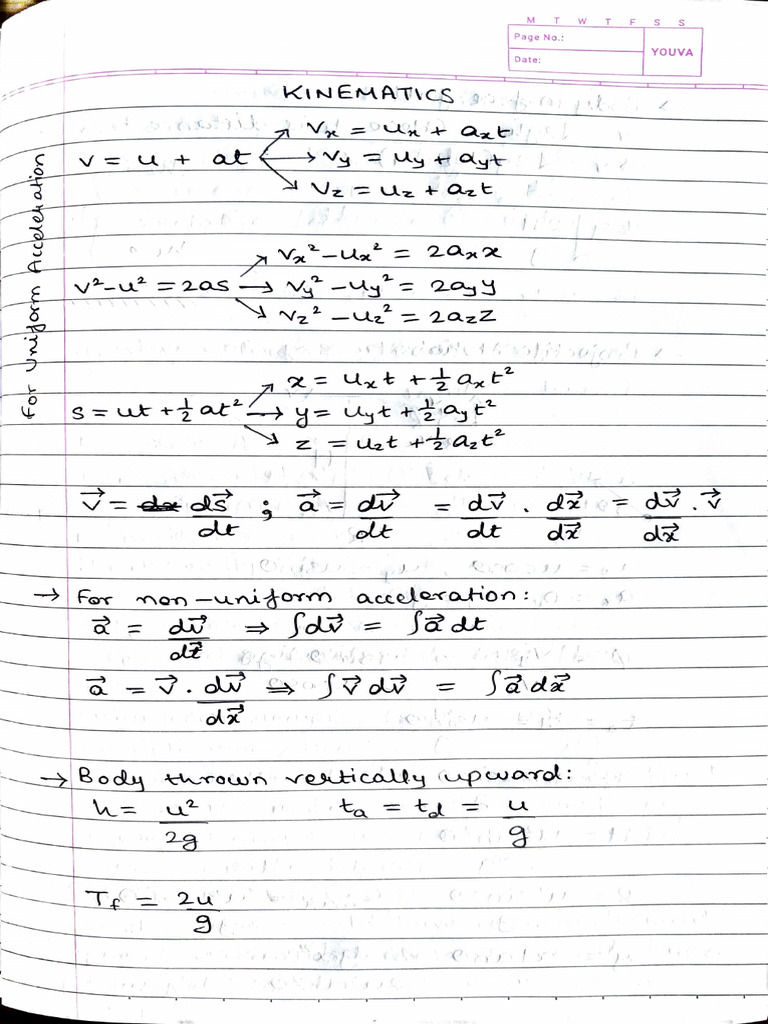 M T W T F S S
Page No.:
Date:
YOUVA
KINEMATICS
For Uniform Acceleration
vₓ = uₓ + aₓt
v = u + at → v_y = u_y + a_yt
v_z = u_z + a_zt
vₓ² - uₓ² = 2aₓx
v² - u² = 2as → v_y² - u_y² = 2a_y y
v_z² - u_z² = 2a_z z
x = uₓt + ½ aₓt²
s = ut + ½ at² → y = u_yt + ½ a_yt²
z = u_zt + ½ a_zt²
v⃗ = ds⃗/dt ; a⃗ = dv⃗/dt = dv⃗/dt . dx⃗/dx⃗ = dv⃗/dx⃗ . v⃗
→ For non-uniform acceleration:
a⃗ = dv⃗/dt⃗ ⇒ ∫dv⃗ = ∫a⃗ dt
a⃗ = v⃗ . dv⃗/dx⃗ ⇒ ∫v⃗ dv⃗ = ∫a⃗ dx⃗
→ Body thrown vertically upward:
h = u²/2g tₐ = t_d = u/g
T_f = 2u/g